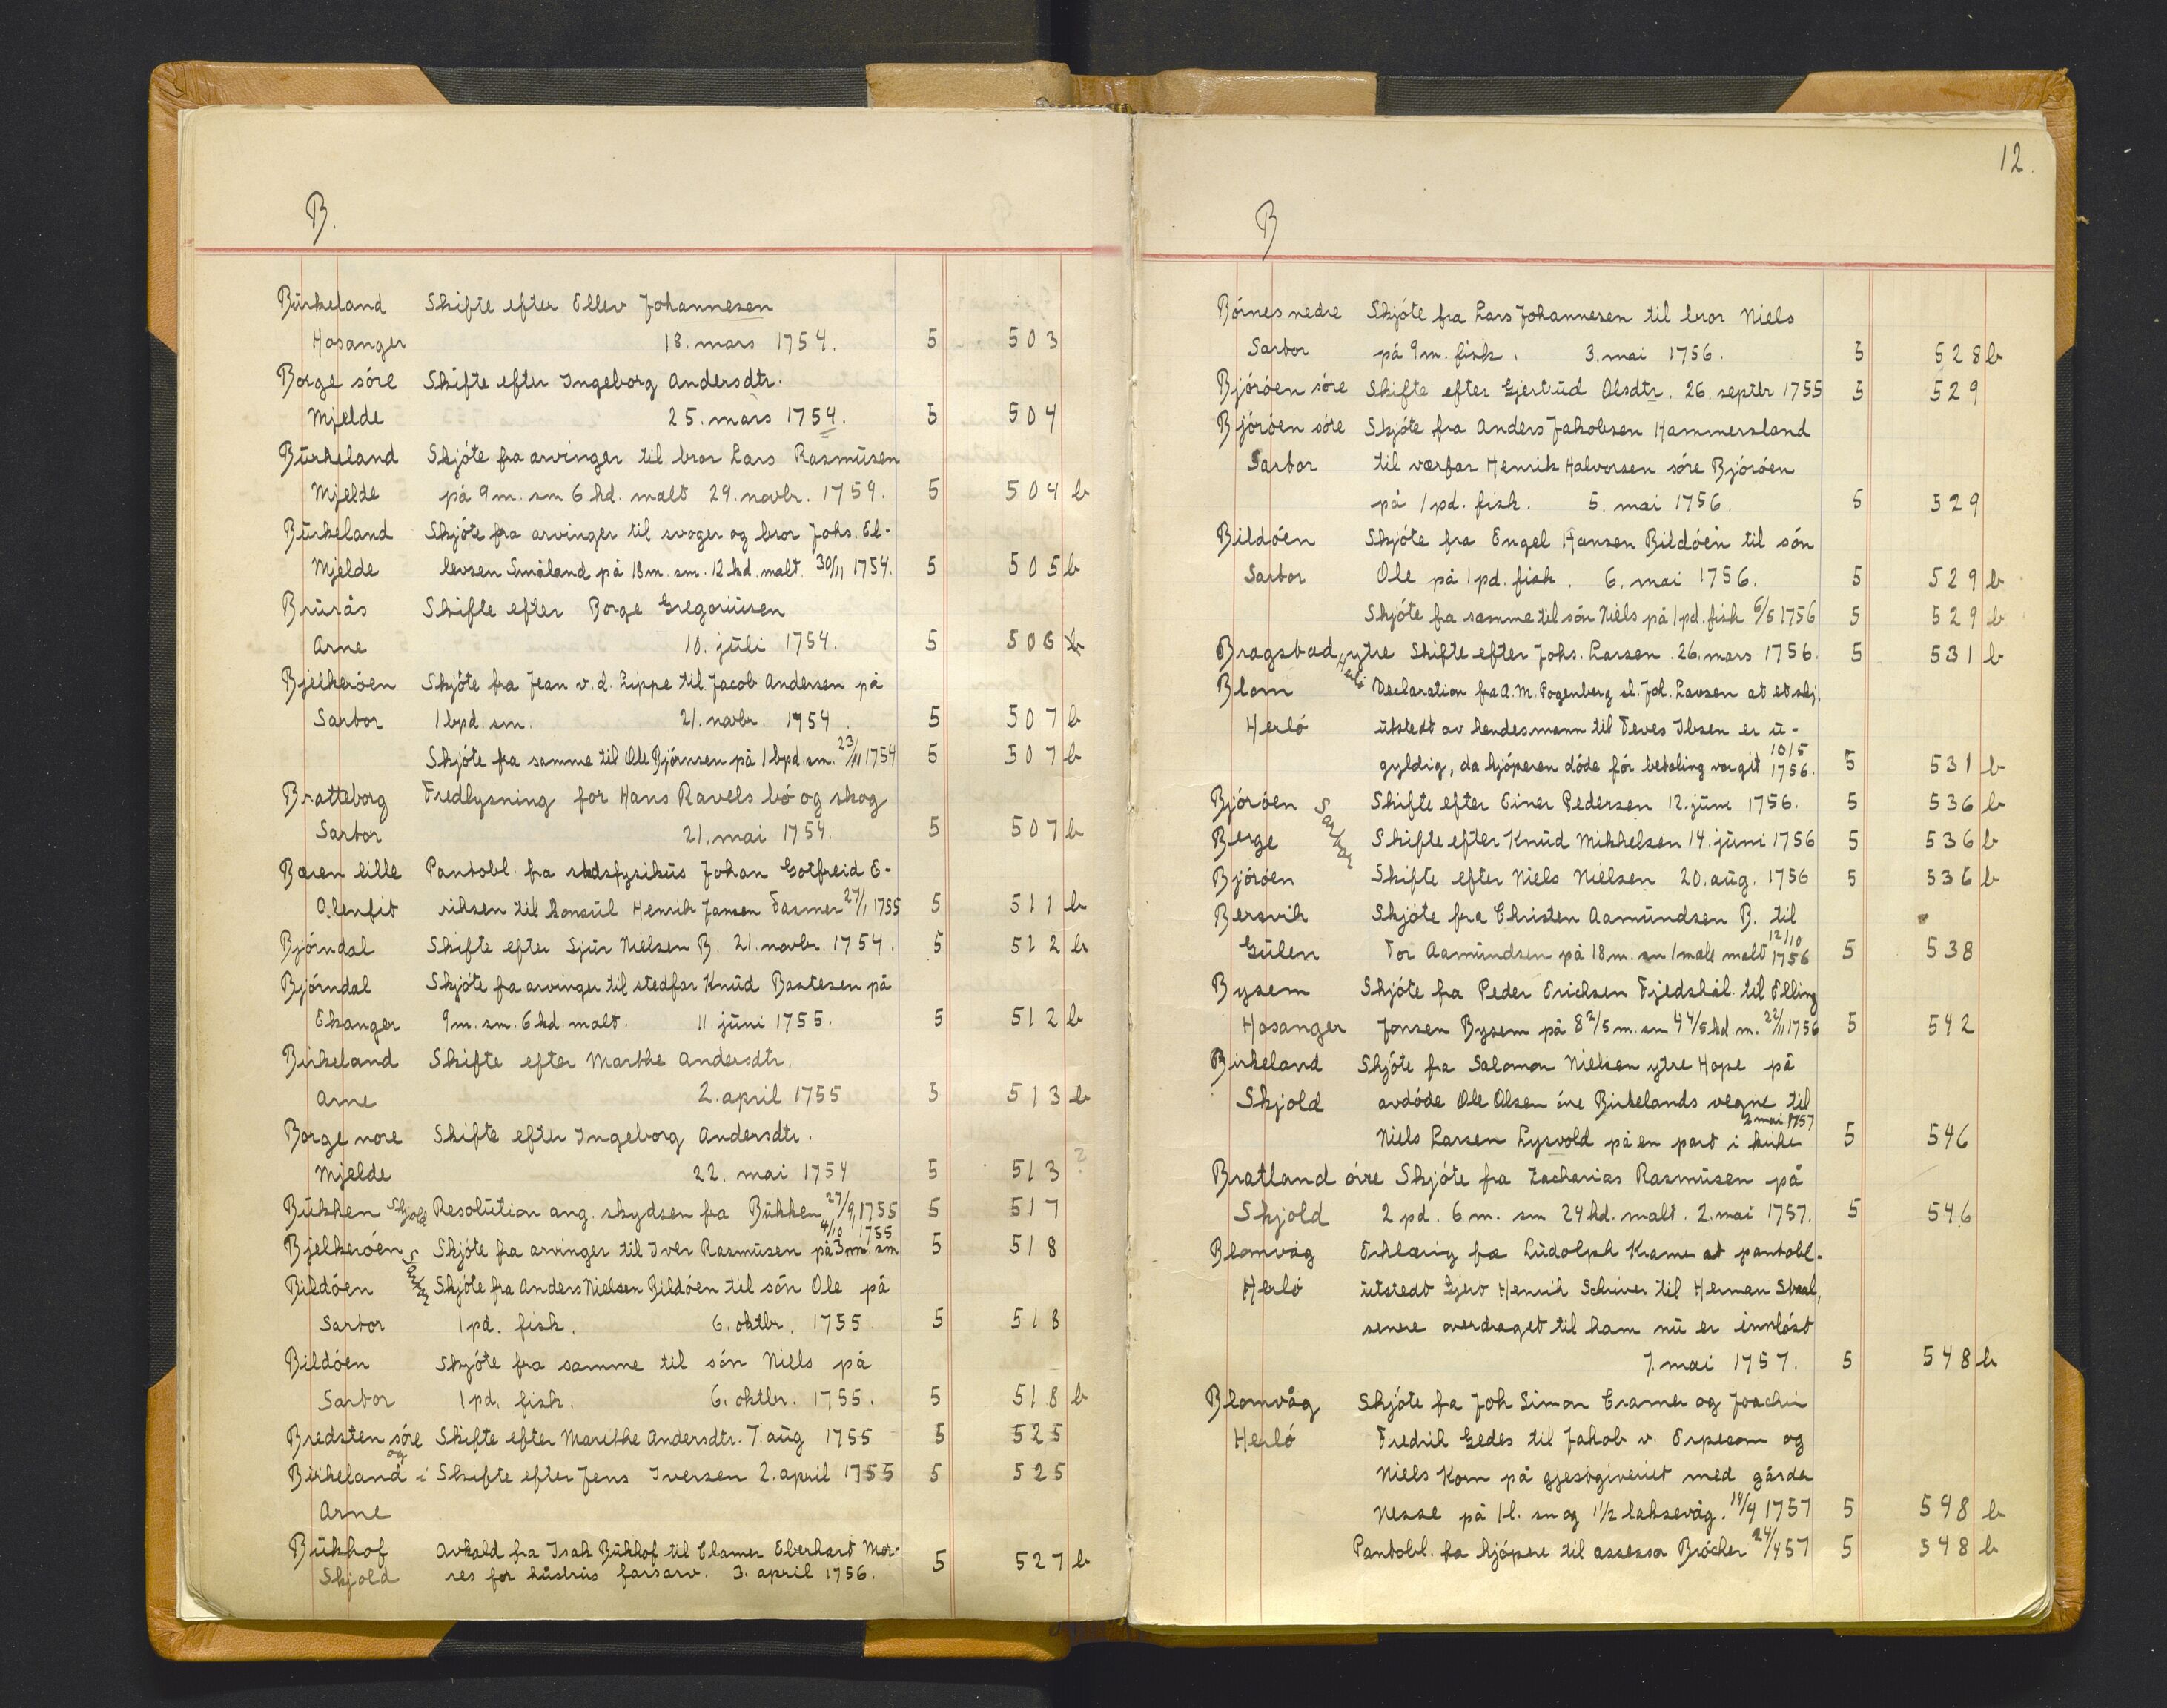 B.
Bŭrkeland Skifte efter Ellev Johannesen
Hosanger 18. mars 1754. 5 503
Borge söre Skifte efter Ingeborg Andersdtr.
Mjelde 25. mars 1754. 5 504
Bŭrkeland Skjöte fra arvinger til bror Lars Rasmŭsen
Mjelde på 9 m. sm 6 hd. malt 29. novbr. 1754. 5 504 b
Bŭrkeland Skjöte fra arvinger til svoger og bror Johs. El-
Mjelde levsen Småland på 18 m. sm. 12 hd. malt. 30/11 1754. 5 505 b
Brŭrås Skifte efter Borge Gregoriŭsen
Arne 10. jŭli 1754. 5 506 b
Bjelkeröen Skjöte fra Jean v. d. Lippe til Jacob Andersen på
Sartor 1 bpd. sm. 21. novbr. 1754. 5 507 b
Skjöte fra samme til Ole Björnsen på 1 bpd. sm. 23/11 1754 5 507 b
Bratteborg Fredlysning for Hans Ravels bö og skog
Sartor 21. mai 1754. 5 507 b
Bæren lille Pantobl. fra stadsfysikŭs Johan Gotfreid E-
Alenfit riksen til konsŭl Henrik Jansen Fasmer 27/1 1755 5 511 b
Björndal Skifte efter Sjŭr Nielsen B. 21. novbr. 1754. 5 512 b
Björndal Skjöte fra arvinger til stedfar Knŭd Bastesen på
Ekanger 9 m. sm. 6 hd. malt. 11. jŭni 1755. 5 512 b
Birkeland Skifte efter Marthe Andersdtr.
Arne 2. april 1755 5 513 b
Borge nore Skifte efter Ingeborg Andersdtr.
Mjelde 22. mai 1754 5 513 ?
Bŭkken Skjold Resolŭtion ang. skydsen fra Bŭkken 27/9, 1755 5 517
Bjelkeröen Sartor Skjöte fra arvinger til Iver Rasmŭsen på 3 m sm 4/10 1755 5 518
Bildöen Skjöte fra Anders Nielsen Bildöen til sön Ole på
Sartor 1 pd. fisk. 6. oktbr. 1755 5 518
Bildöen Skjöte fra samme til sön Niels på
Sartor 1 pd. fisk. 6. oktbr. 1755. 5 518 b
Bredsten söre Skifte efter Marithe Andersdtr. 7. aŭg 1755 5 525
og
Birkeland i Skifte efter Jens Iversen 2. april 1755 5 525
Arne
Bŭkhof Avkald fra Isak Bŭkhof til Clamer Eberhart Mor-
Skjold res for hŭstrŭs farsarv. 3. april 1756. 5 527 b
12.
B
Börnes nedre Skjöte fra Lars Johannesen til bror Niels
Sartor på 9 m. fisk. 3. mai 1756. 5 528 b
Björöen söre Skifte efter Gjertrŭd Olsdtr. 26. septbr 1755 5 529
Björöen söre Skjöte fra Anders Jakobsen Hammersland
Sartor til værfar Henrik Halvorsen söre Björöen
på 1 pd. fisk. 5. mai 1756. 5 529
Bildöen Skjöte fra Engel Hansen Bildöen til sön
Sartor Ole på 1 pd. fisk. 6. mai 1756. 5 529 b
Skjöte fra samme til sön Niels på 1 pd. fisk 6/5 1756 5 529 b
Bragstad ytre Herlö Skifte efter Johs. Larsen. 26. mars 1756. 5 531 b
Blom Declaration fra A. M. Pogenberg sl. Joh. Lavsen at et skj.
Herlö ŭtstedt av hendes mann til Teves Ibsen er ŭ-
gyldig, da kjöperen döde för betaling var git 10/5 1756. 5 531 b
Björöen Sartor Skifte efter Einer Pedersen 12. jŭni 1756. 5 536 b
Berge Skifte efter Knŭd Mikkelsen 14. jŭni 1756 5 536 b
Björöen Skifte efter Niels Nielsen 20. aŭg. 1756 5 536 b
Bersvik Skjöte fra Christen Aamŭndsen B. til
Gŭlen Tor Aamŭndsen på 18 m. sm 1 mæle malt 12/10 1756 5 538
Bysem Skjöte fra Peder Erichsen Fjedskål til Elling
Hosanger Jonsen Bysem på 8 2/5 m. sm 4 4/5 hd. m. 22/11 1756 5 542
Birkeland Skjöte fra Salomon Nielsen ytre Hope på
Skjold avdöde Ole Olsen övre Birkelands vegne til
Niels Larsen Lysvold på en part i kirke 2 mai 1757 5 546
Bratland övre Skjöte fra Zacharias Rasmŭsen på
Skjold 2 pd. 6 m. sm 24 hd. malt. 2. mai 1757. 5 546
Blomvåg Erklæring fra Lŭdolph Kramer at pantobl.
Herlö ŭtstedt Gjert Henrik Schriver til Herman Stral,
senere overdraget til ham nŭ er innlöst
7. mai 1757. 5 548 b
Blomvåg Skjöte fra Joh Simon Cramer og Joachim
Herlö Fredrik Gedes til Jakob v. Erpecom og
Niels Korn på gjestgiveriet med gården
Nesse på 1 l. sm og 1 1/2 laksevåg. 14/4 1757 5 548 b
Pantobl. fra kjöpere til assessor Bröcher 24/4 57 5 548 b